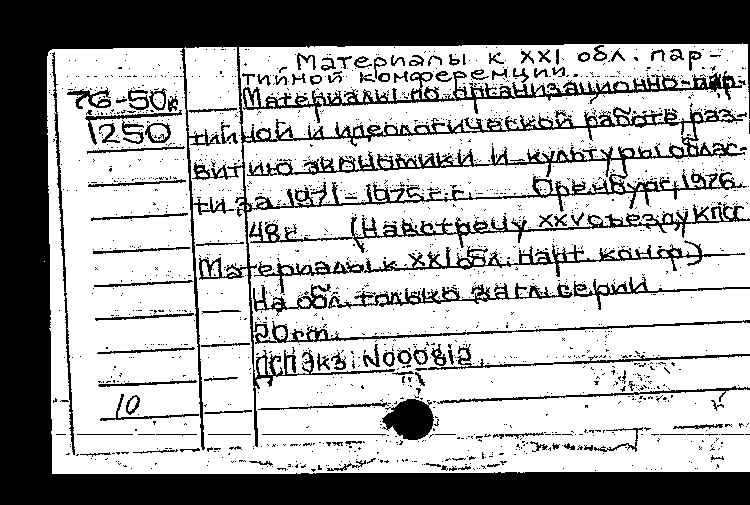 Материалы к XXI обл. пар-
тийной конференции.
76-50к
1250
Материалы по организационно-пар-
тийной и идеологической работе, раз-
витию экономики и культуры облас-
ти за 1971-1975 г.г. Оренбург, 1976.
48 с. (Навстречу XXV съезду КПСС
Материалы к XXI обл. парт. конф.)
На обл. только загл. серии.
20 cm.
ДСП Экз. N000812.
10